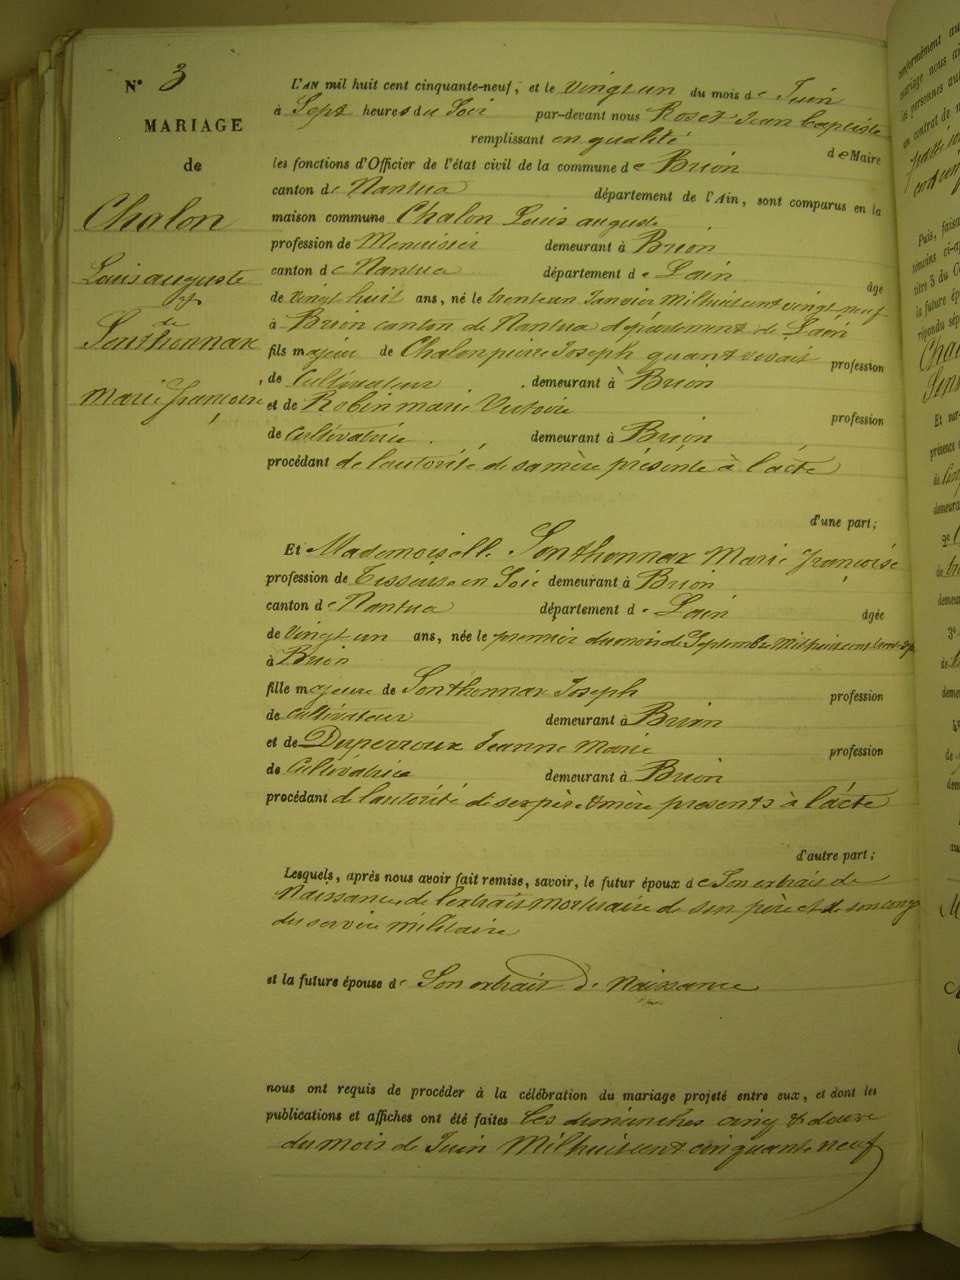 N° 3
MARIAGE
de
Chalon
Louis auguste
et
de
Sonthonnax
Marie françoise
L'AN mil huit cent cinquante-neuf, et le vingt un du mois de Juin
à Sept heures du Soir par-devant nous Rosex Jean baptiste
remplissant en qualité de Maire
les fonctions d'Officier de l'état civil de la commune de Brion
canton de Nantua département de l'Ain, sont comparus en la
maison commune Chalon Louis auguste
profession de Menuisier demeurant à Brion
canton de Nantua département de Lain âgé
de vingt huit ans, né le trente un Janvier Mil huit cent vingt neuf
à Brion canton de Nantua département de Lain
fils majeur de Chalon pierre Joseph quant vivait profession
de Cultivateur demeurant à Brion
et de Robin marie Victoire profession
de Cultivatrice demeurant à Brion
procédant de l'autorité de sa mère présente à l'acte
d'une part;
Et Mademoiselle Sonthonnax Marie françoise
profession de Tisseuse en Soie demeurant à Brion
canton de Nantua département de Lain âgée
de vingt un ans, née le premier du mois de Septembre Mil huit cent
à Brion
fille majeure de Sonthonnax Joseph profession
de Cultivateur demeurant à Brion
et de Duperroux Jeanne Marie profession
de Cultivatrice demeurant à Brion
procédant de l'autorité de ses père & mère présents à l'acte
d'autre part;
Lesquels, après nous avoir fait remise, savoir, le futur époux de Son extrait de
Naissance de l'extrait mortuaire de son père et de son congé
du service militaire
et la future épouse de Son extrait de Naissance
nous ont requis de procéder à la célébration du mariage projeté entre eux, et dont les
publications et affiches ont été faites les dimanches cinq & douze
du mois de Juin Mil huit cent cinquante neuf